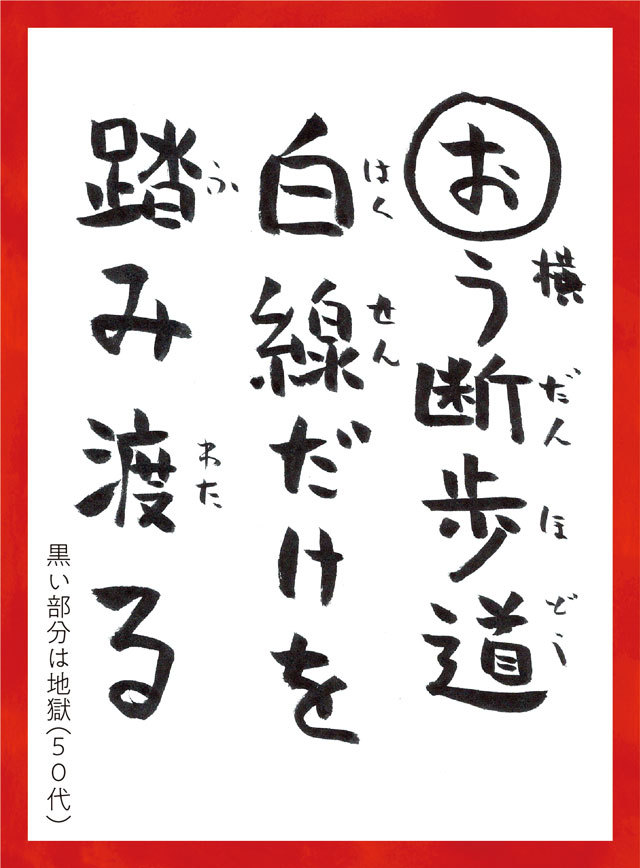 おう断歩道
横だんほどう
白線だけを
はくせん
踏み渡る
ふわた
黒い部分は地獄(50代)